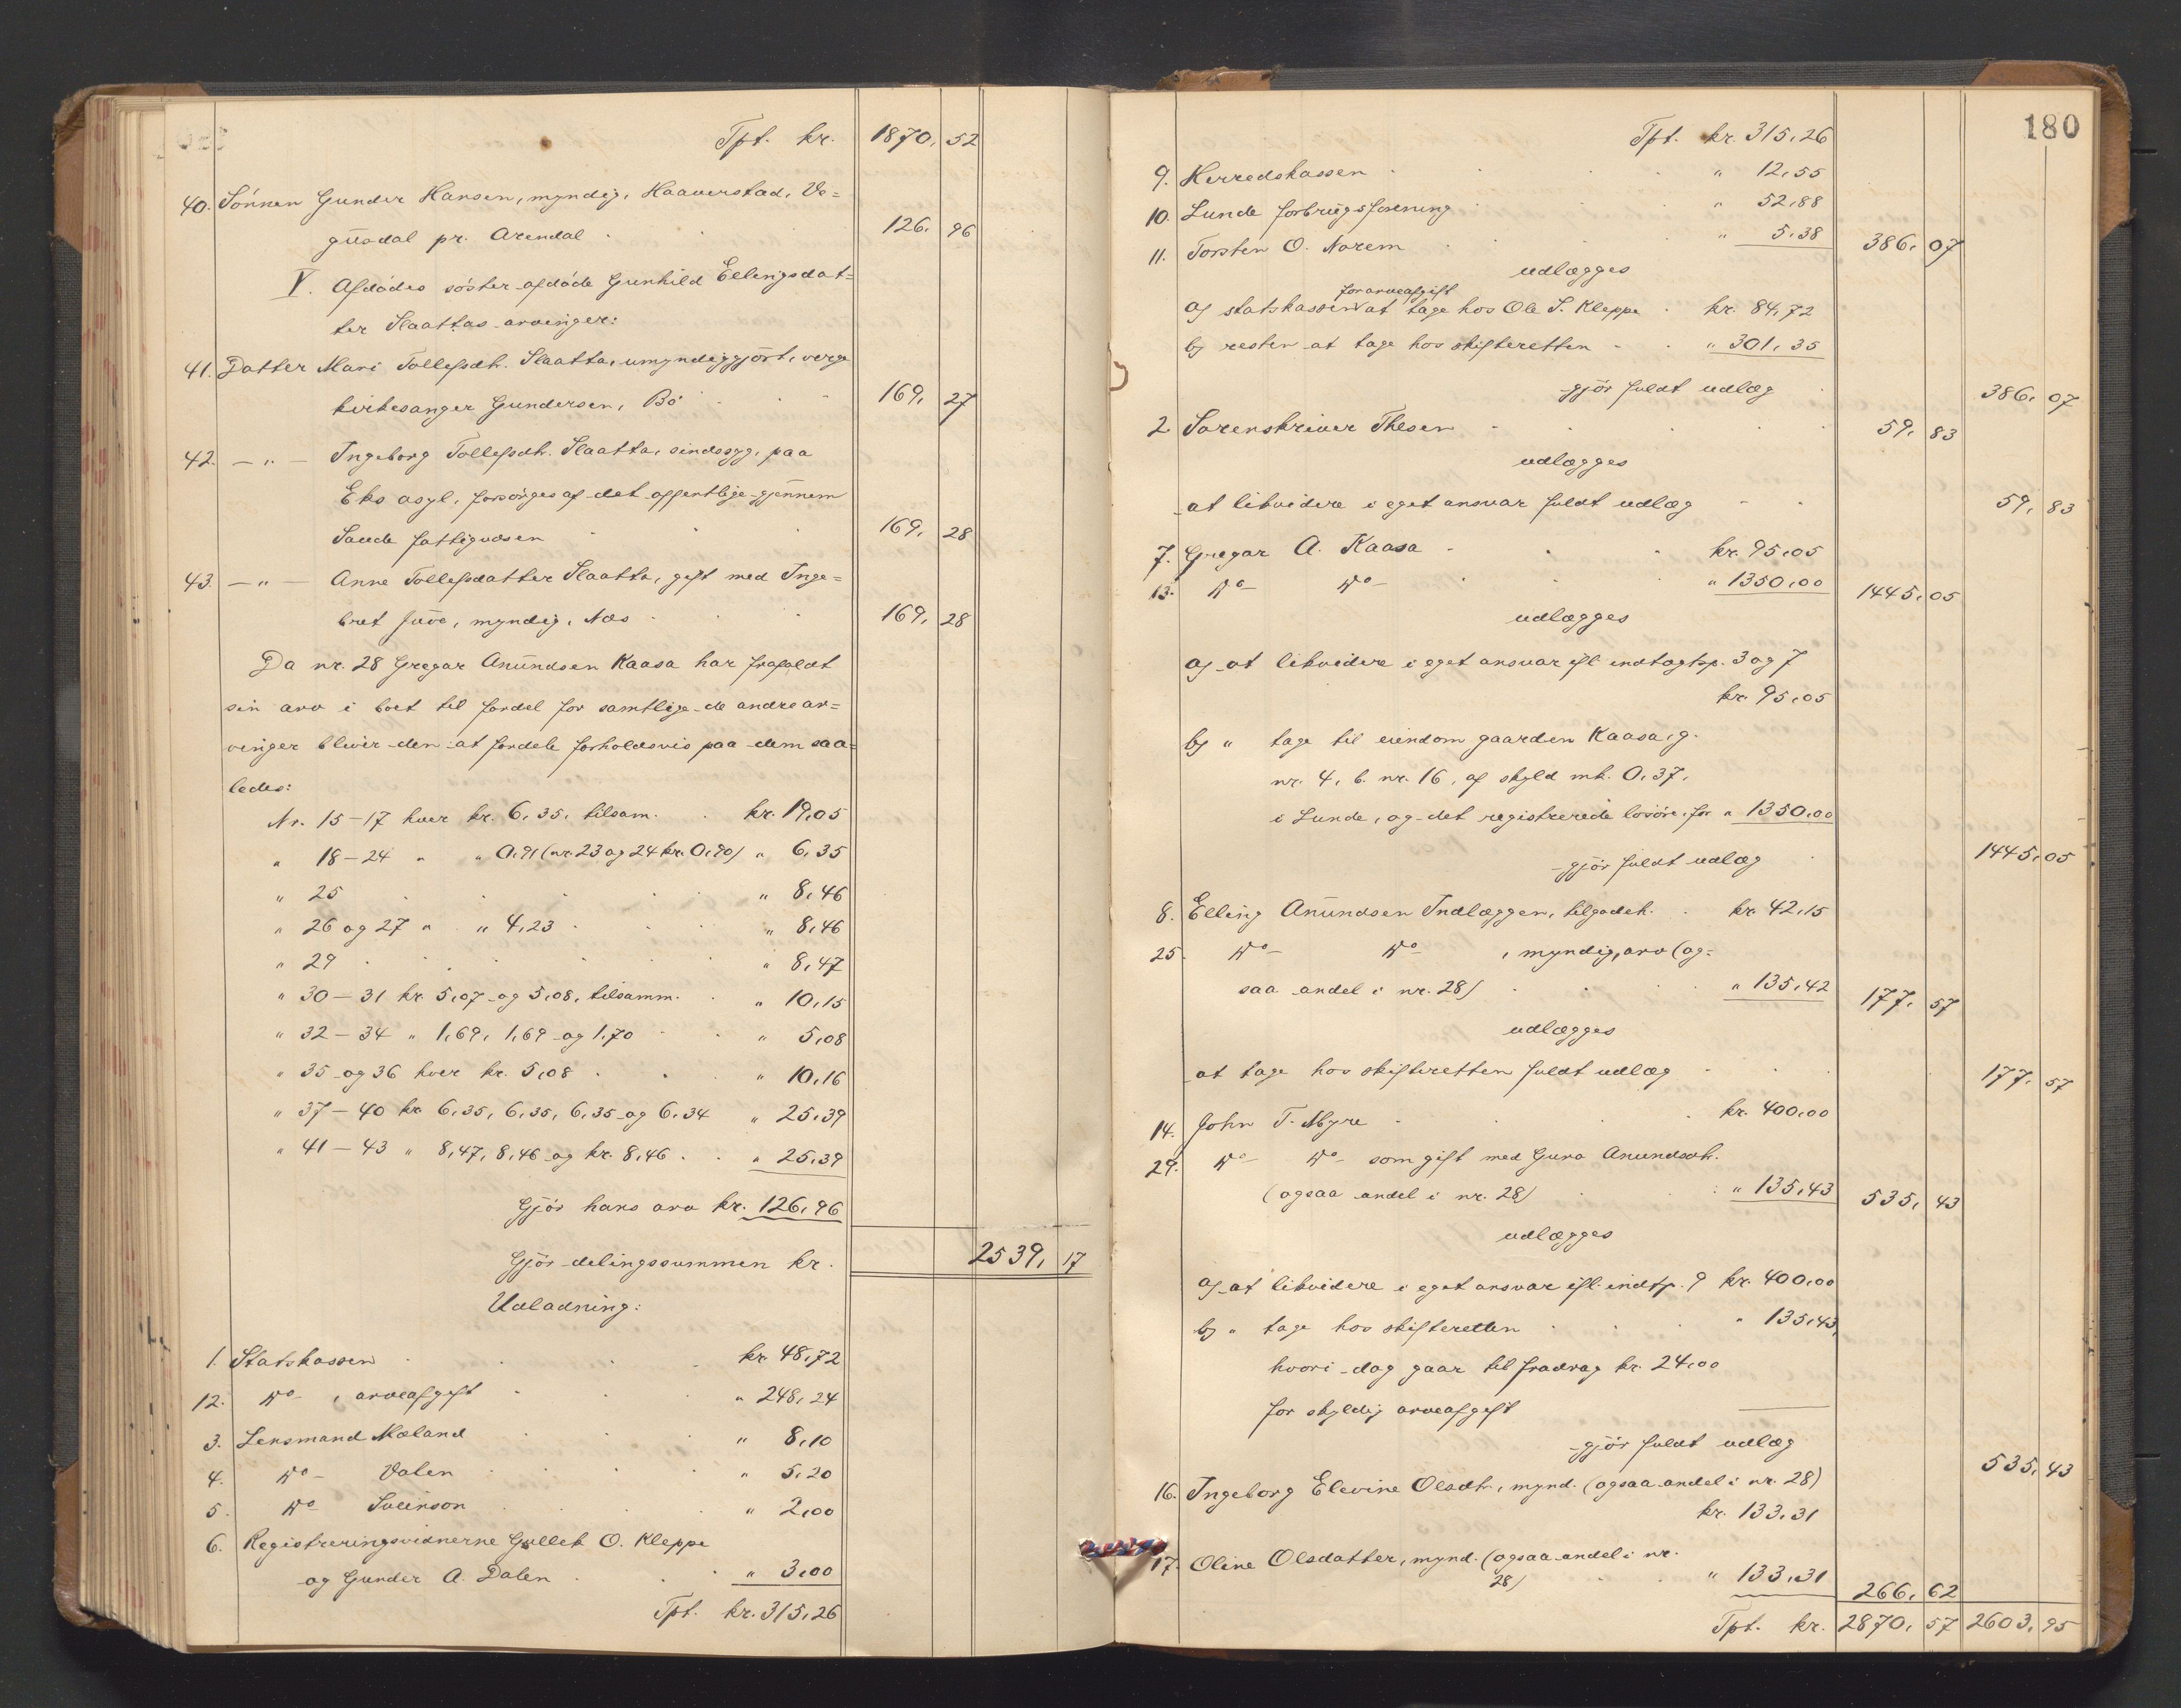 Tpt. kr. 1870, 52
40. Sønnen Gunder Hansen, myndig, Haaverstad, Ve=
gusdal pr. Arendal 126, 96
V. Afdødes søster afdøde Gunhild Ellingsdat=
ter Slaattas arvinger:
41. Datter Mari Tollefsdtr. Slaatta, umyndiggjørt, verge
kirkesanger Gundersen, Bø 169, 27
42. —„— Ingeborg Tollefsdtr. Slaatta, sindssyg, paa
Eks asyl, forsørges af det offentlige gjennem
Saude fattigvæsen 169, 28
43. —„— Anne Tollefsdatter Slaatta, gift med Inge=
bret Juve, myndig, Næs 169, 28
Da nr. 28 Gregar Anundsen Kaasa har frafaldt
sin arv i boet til fordel for samtlige de andre ar=
vinger bliver den at fordele forholdsvis paa dem saa=
ledes:
Nr. 15–17 hver kr. 6,35, tilsam. kr. 19,05
„ 18–24 „ „ 0,91 (nr. 23 og 24 kr. 0,90) „ 6,35
„ 25 „ 8,46
„ 26 og 27 „ „ 4,23 „ 8,46
„ 29 „ 8,47
„ 30–31 kr. 5,07 og 5,08, tilsamm. „ 10,15
„ 32–34 „ 1,69, 1,69 og 1,70 „ 5,08
„ 35 og 36 hver kr. 5,08 „ 10,16
„ 37–40 kr. 6,35, 6,35, 6,35 og 6,34 „ 25,39
„ 41–43 „ 8,47, 8,46 og kr. 8,46 „ 25,39
Gjør hans arv kr. 126,96
Gjør delingssummen kr. 2539, 17
Udladning:
1. Statskassen kr. 48,72
12. do , arveafgift „ 248,24
3. Lensmand Mæland „ 8,10
4. do Valen „ 5,20
5. do Sveinson „ 2,00
6. Registreringsvidnerne Gullek O. Kleppe
og Gunder A. Dalen „ 3,00
Tpt. kr. 315,26
180
Tpt. kr. 315,26
9. Herredskassen „ 12,55
10. Lunde forbrugsforening „ 52,88
11. Torsten O. Norem „ 5,38 386, 07
udlægges
for arveafgift
a) statskassen at tage hos Ole S. Kleppe kr. 84,72
b) resten at tage hos skifteretten „ 301,35
gjør fuldt udlæg 386, 07
2. Sorenskriver Thesen 59, 83
udlægges
at likvidere i eget ansvar fuldt udlæg 59, 83
7. Gregar A. Kaasa kr. 95,05
13. do do „ 1350,00 1445,05
udlægges
a) at likvidere i eget ansvar ifl. indtagtsp. 3 og 7
kr. 95,05
b) „ tage til eiendom gaarden Kaasa, g.
nr. 4, b. nr. 16, af skyld mk. 0,37,
i Lunde, og det registrerede løsøre, for „ 1350,00
gjør fuldt udlæg 1445,05
8. Elling Anundsen Indlæggen, tilgodeh. kr. 42,15
25. do do , myndig, arv (og=
saa andel i nr. 28) „ 135,42 177, 57
udlægges
at tage hos skifteretten fuldt udlæg 177, 57
14. John T. Myre kr. 400,00
29. do do som gift med Guro Anundsdtr.
(ogsaa andel i nr. 28) „ 135,43 535, 43
udlægges
a) at likvidere i eget ansvar ifl. indtp. 9 kr. 400,00
b) „ tage hos skifteretten „ 135,43,
hvori dog gaar til fradrag kr. 24,00
for skyldig arveafgift
gjør fuldt udlæg 535, 43
16. Ingeborg Elevine Olsdtr., mynd. (ogsaa andel i nr. 28)
kr. 133,31
17. Oline Olsdatter, mynd. (ogsaa andel i nr.
28) „ 133,31 266, 62
Tpt. kr. 2870, 57 2603, 95